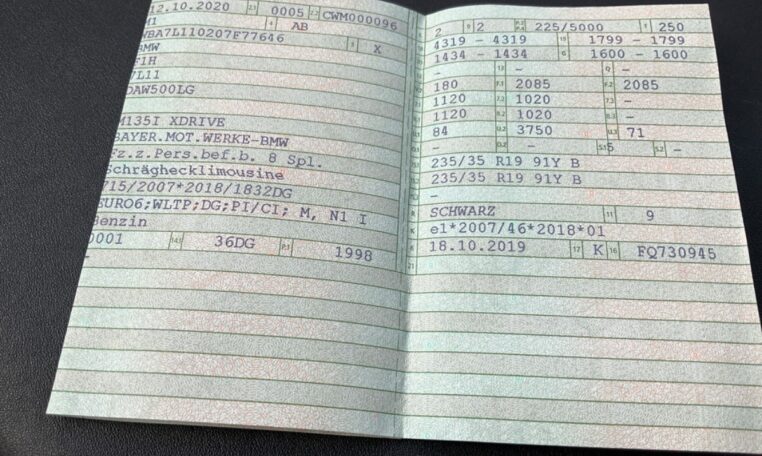 12.10.2020 2.1 0005 2.2 CWM000096
M1 4 AB
WBA7L110207F77646 3 X
BMW
F1H
7L11
DAW500LG
M135I XDRIVE
BAYER.MOT.WERKE-BMW
Fz.z.Pers.bef.b. 8 Spl.
Schräghecklimousine
715/2007*2018/1832DG
EURO6;WLTP;DG;PI/CI; M, N1 I
Benzin
0001 14.1 36DG P.1 1998
-
2 9 2 P.2 P.4 225/5000 T 250
4319 - 4319 19 1799 - 1799
1434 - 1434 G 1600 - 1600
- 13 - Q -
180 F.1 2085 F.2 2085
1120 7.2 1020 7.3 -
1120 8.2 1020 8.3 -
84 U.2 3750 U.3 71
- O.2 - S.1 5 S.2 -
235/35 R19 91Y B
235/35 R19 91Y B
-
R SCHWARZ 11 9
K e1*2007/46*2018*01
6 18.10.2019 17 K 16 FQ730945
21